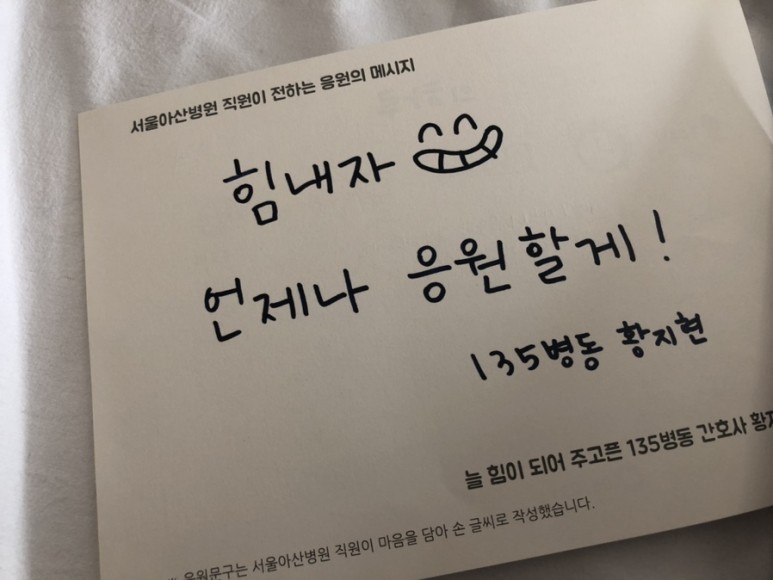 서울아산병원 직원이 전하는 응원의 메시지
힘내자
언제나 응원할게!
135병동 황지현
늘 힘이 되어 주고픈 135병동 간호사
응원문구는 서울아산병원 직원이 마음을 담아 손 글씨로 작성했습니다.